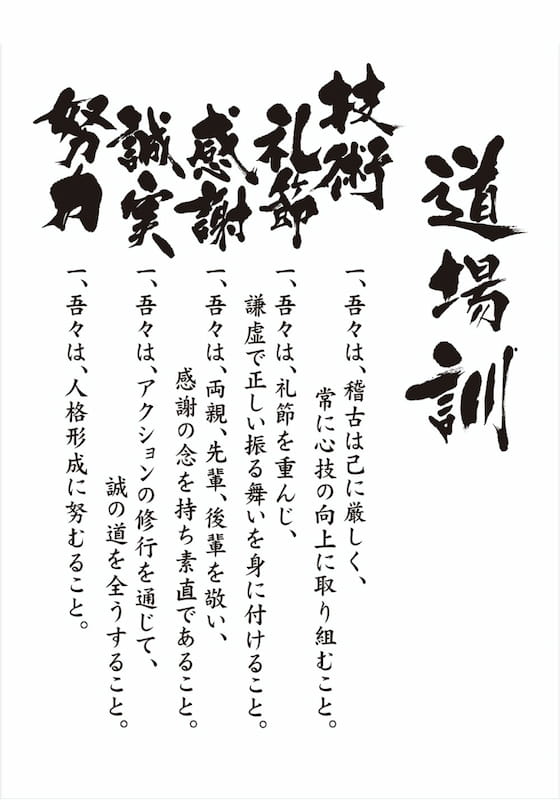 道場訓
技術
一、吾々は、稽古は己に厳しく、
常に心技の向上に取り組むこと。
礼節
一、吾々は、礼節を重んじ、
謙虚で正しい振る舞いを身に付けること。
感謝
一、吾々は、両親、先輩、後輩を敬い、
感謝の念を持ち素直であること。
誠実
一、吾々は、アクションの修行を通じて、
誠の道を全うすること。
努力
一、吾々は、人格形成に努むること。